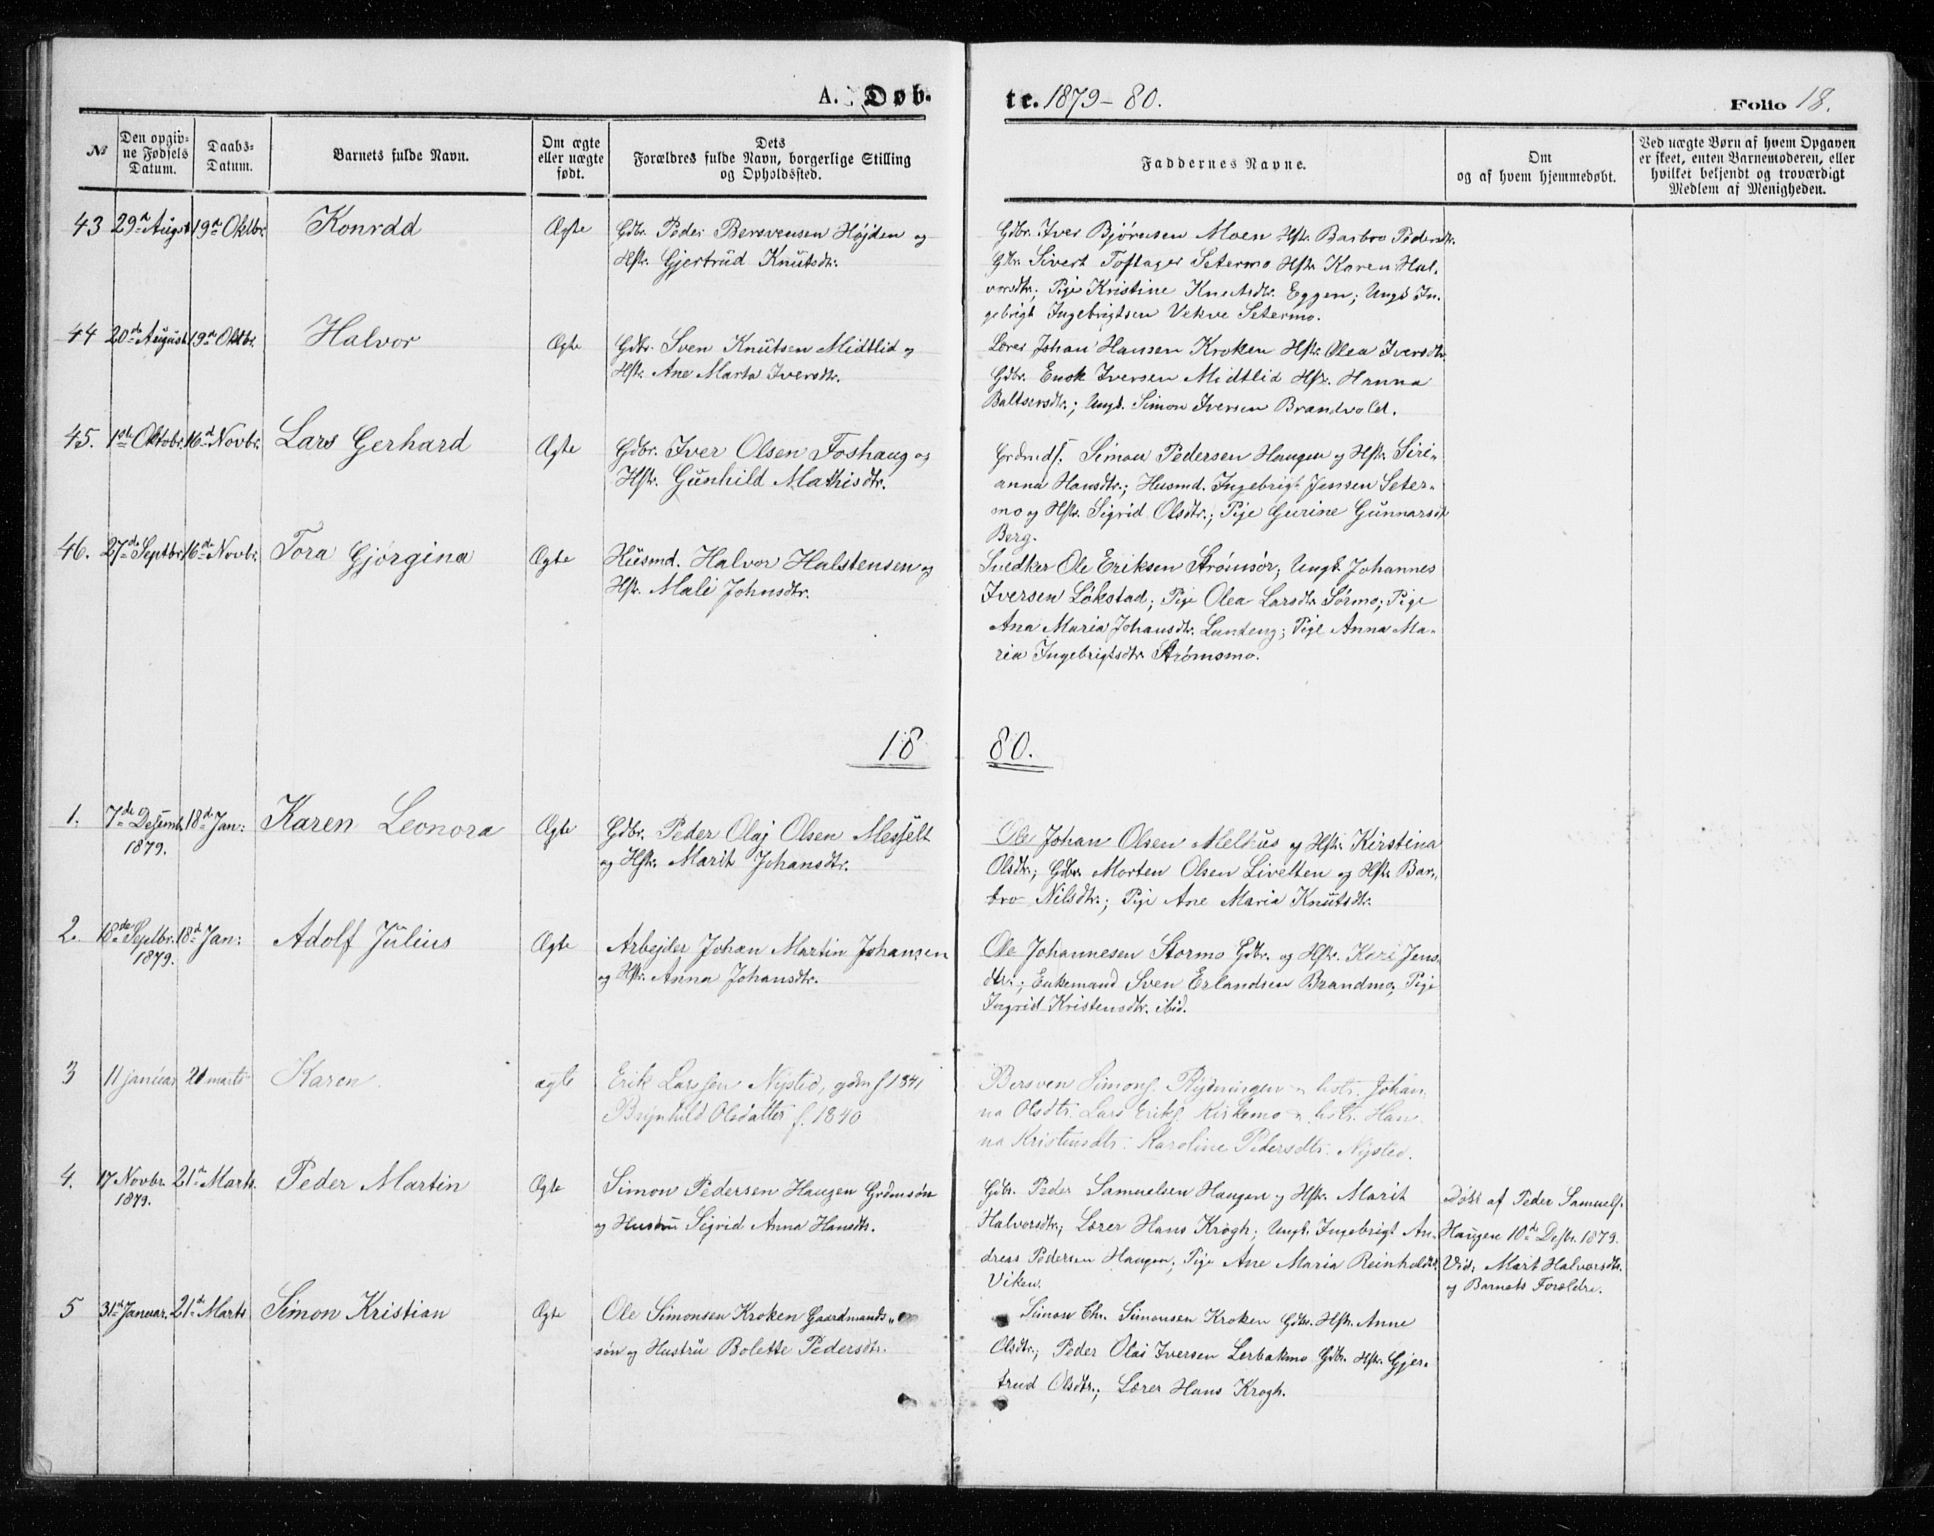 A. Døb-
te. 1879-80.
Folio 18.
№
Den opgiv-
ne Fødsels
Datum.
Daabs-
Datum.
Barnets fulde Navn.
Om ægte
eller uægte
født.
Dets
Forældres fulde Navn, borgerlige Stilling
og Opholdssted.
Faddernes Navne.
Om
og af hvem hjemmedøbt.
Ved uægte Børn af hvem Opgaven
er skeet, enten Barnemoderen, eller
hvilket bekjendt og troværdigt
Medlem af Menigheden.
43 29de August 19de Oktbr. Konrdd Ægte Gdbr. Peder Bersvensen Højden og
Hstr. Gjertrud Knutsdtr.
Gdbr. Iver Bjørnsen Moen Hstr. Barbro Pedersdtr.
Gbr. Sivert Toftager Setermo Hstr. Karen Hal-
vorsdtr; Pige Kristine Knutsdtr. Eggen; Ungk In-
gebrigt Ingebrigtsen Vekve Setermo.
44 20de August 19de Oktbr. Halvor Ægte Gdbr. Sven Knutsen Midtlid og
Hstr. Ane Marta Iversdtr.
Lærer Johan Hansen Kroken Hstr. Olea Iversdtr.
Gdbr. Enok Iversen Midtlid Hstr. Hanna
Baltsersdtr.; Ungk. Simon Iversen Brandvold.
45. 1ste Oktobr. 16de Novbr. Lars Gerhard Ægte Gdbr. Iver Olsen Foshaug og
Hstr. Gunhild Mathisdtr.
Grdmds. Simon Pedersen Haugen og Hstr. Siri-
anna Hansdtr.; Husmd. Ingebrigt Jensen Seter-
mo og Hstr. Sigrid Olsdtr.; Pige Gurine Gunnarsdt
Berg.
46. 27de Septbr. 16de Novbr. Tora Gjørgina Ægte Husmd. Halvor Halstensen og
Hstr. Mali Johnsdtr.
Snedker Ole Eriksen Strømsør; Ungk. Johannes
Iversen Løkstad; Pige Olea Larsdtr. Sørmo; Pige
Ana Maria Johansdtr. Lundeng; Pige Anna Ma-
ria Ingebrigtsdtr. Strømsmo.
18 80.
1. 7de Desemb. 18de Jan: Karen Leonora Ægte Gdbr. Peder Olaj Olsen Messelt
1879.
og Hstr. Marit Johansdtr.
Ole Johan Olsen Melhus og Hstr. Kirstina
Olsdtr.; Gdbr. Morten Olsen Livelten og Hstr. Bar-
bro Nilsdtr.; Pige Ane Maria Knutsdtr.
2. 18de Septbr. 18de Jan: Adolf Julius Ægte Arbejder Johan Martin Johansen
1879.
og Hstr. Anna Johansdtr.
Ole Johannesen Stormo Gdbr. og Hstr. Kari Jens
dtr.; Enkemand Sven Erlandsen Brandmo; Pige
Ingrid Kristensdtr. ibid.
3 11 januar 21 marts Karen ægte Erik Larssen Nysted, gdm f 1841
Brynhild Olsdatter f. 1840
Bersven Simons. Rydningen og hstr. Johan-
na Olsdtr. Lars Eriks. Kirkemo og hstr. Han-
na Kristensdtr. Karoline Pedersdtr. Nysted.
4. 17 Novbr. 21de Marts. Peder Martin Ægte Simon Pedersen Haugen Grdmsøn
1879.
og Hustru Sigrid Anna Hansdtr.
Gdbr. Peder Samuelsen Haugen og Hstr. Marit
Halvorsdtr.; Lærer Hans Krogh; Ungk. Ingebrigt An-
dreas Pedersen Haugen; Pige Ane Maria Reinholdt.
Viken.
Døbt af Peder Samuels.
Haugen 10de Desbr. 1879.
Vid: Marit Halvorsdtr.
og Barnets Forældre.
5 31te Januar. 21de Marts Simon Kristian Ægte Ole Simonsen Kroken Gaardmands-
søn og Hustru Bolette Pedersdtr.
Simon Chr. Simonsen Kroken Gdbr. Hstr. Anne
Olsdtr.; Peder Olai Iversen Lerbakmo Gdbr. Hstr. Gjer-
trud Olsdtr.; Lærer Hans Krogh.